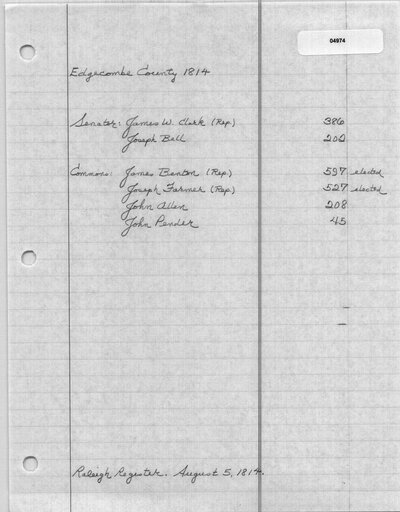 04974
Edgecombe County 1814
Senator: James W. Clark (Rep.) 386
Joseph Ball 202
Commons: James Benton (Rep.) 597 elected
Joseph Farmer (Rep.) 527 elected
John Allen 208
John Pender 45
Raleigh Register. August 5, 1814.